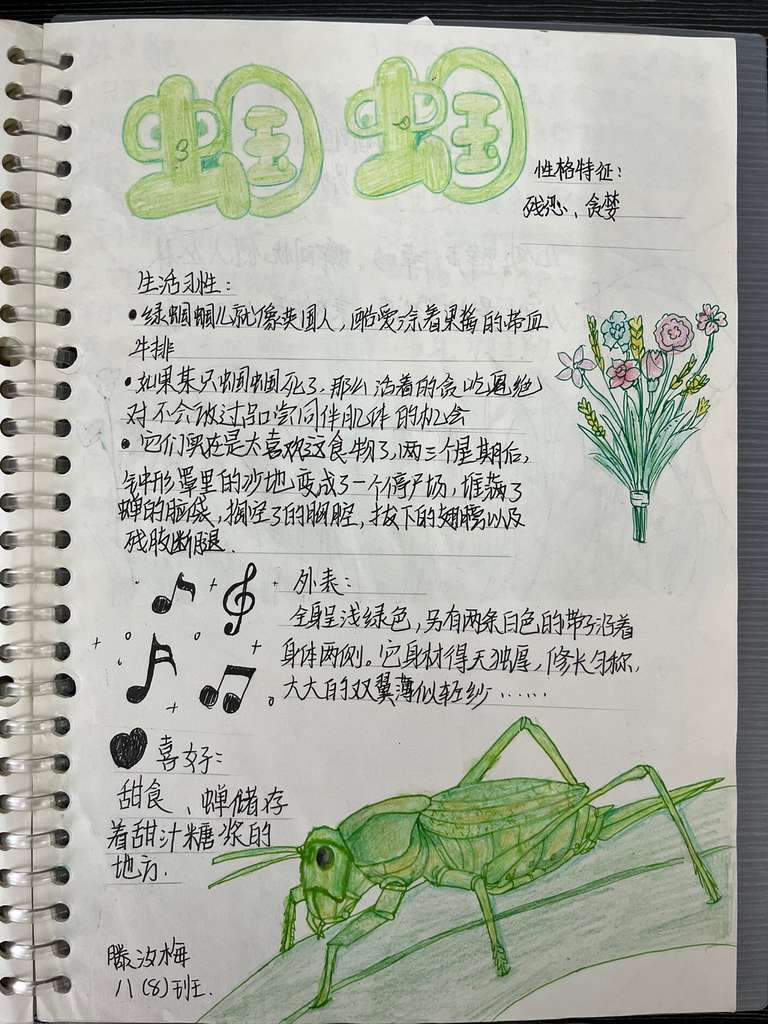 蝈蝈
性格特征：
残忍、贪婪
生活习性：
•绿蝈蝈儿就像英国人，酷爱涂着果酱的带血
牛排
•如果某只蝈蝈死了，那么活着的贪吃鬼绝
对不会放过品尝同伴肌体的机会
•它们实在是太喜欢这食物了，两三个星期后，
钟形罩里的沙地变成了一个停尸场，堆满了
蝉的脑袋，掏空了的胸腔，拔下的翅膀以及
残肢断腿.
外表：
全身呈浅绿色，另有两条白色的带子沿着
身体两侧。它身材得天独厚，修长匀称，
大大的双翼薄似轻纱……
喜好：
甜食、蝉储存
着甜汁糖浆的
地方.
滕汝梅
八(8)班.